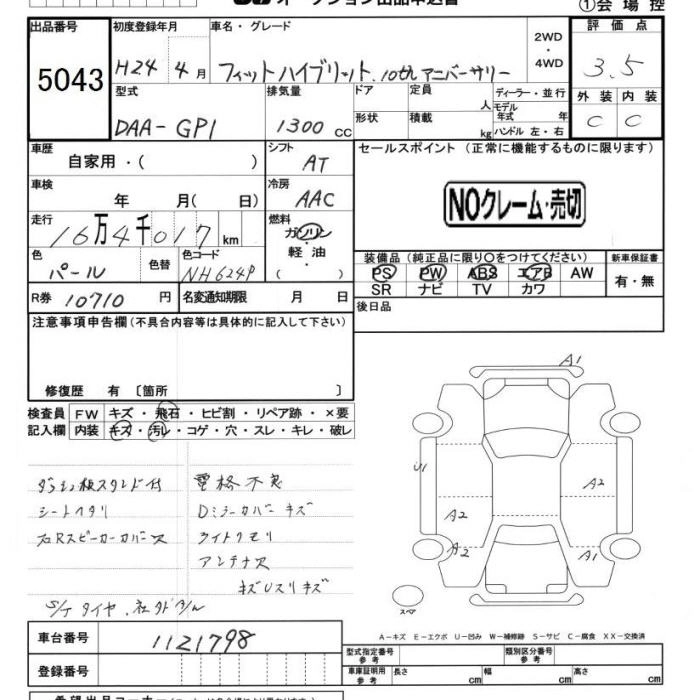 オークション出品申込書
①会場控
出品番号 初度登録年月 車名・グレード 2WD ・ 4WD 評価点
5043 H24 4月 フィットハイブリット.10thアニバーサリー 3.5
型式 排気量 ドア 定員 人 ディーラー・並行 外装 内装
DAA-GP1 1300cc 形状 積載 kg モデル年式 年 ハンドル 左・右 C C
車歴 自家用・( ) シフト AT セールスポイント (正常に機能するものに限ります)
車検 年 月(日) 冷房 AAC
NOクレーム・売切
走行 16万4千017km 燃料 ガソリン・軽油・( )
装備品(純正品に限り○をつけてください) 新車保証書
色 パール 色替 色コード NH624P
PS PW ABS エアB AW 有・無
SR ナビ TV カワ
R券 10710円 名変通知期限 月 日 後日品
注意事項申告欄(不具合内容等は具体的に記入して下さい)
修復歴 有 〔箇所 〕
検査員 FW キズ・飛石・ヒビ割・リペア跡・×要
記入欄 内装 キズ・汚レ・コゲ・穴・スレ・キレ・破レ
A1
U1 A2
A2
A2 A1
スペア
スタンド付 電格不良
シートヘタリ Dミラーカバーキズ
Rスピーカーカバーヌケ ライトクモリ
アンテナ欠
キズUスリキズ
S/Tタイヤ
A-キズ E-エクボ U-凹み W-補修跡 S-サビ C-腐食 XX-交換済
車台番号 1121798
型式指定番号 参考 類別区分番号 参考
登録番号 車庫証明用 参考 長さ cm 幅 cm 高さ cm